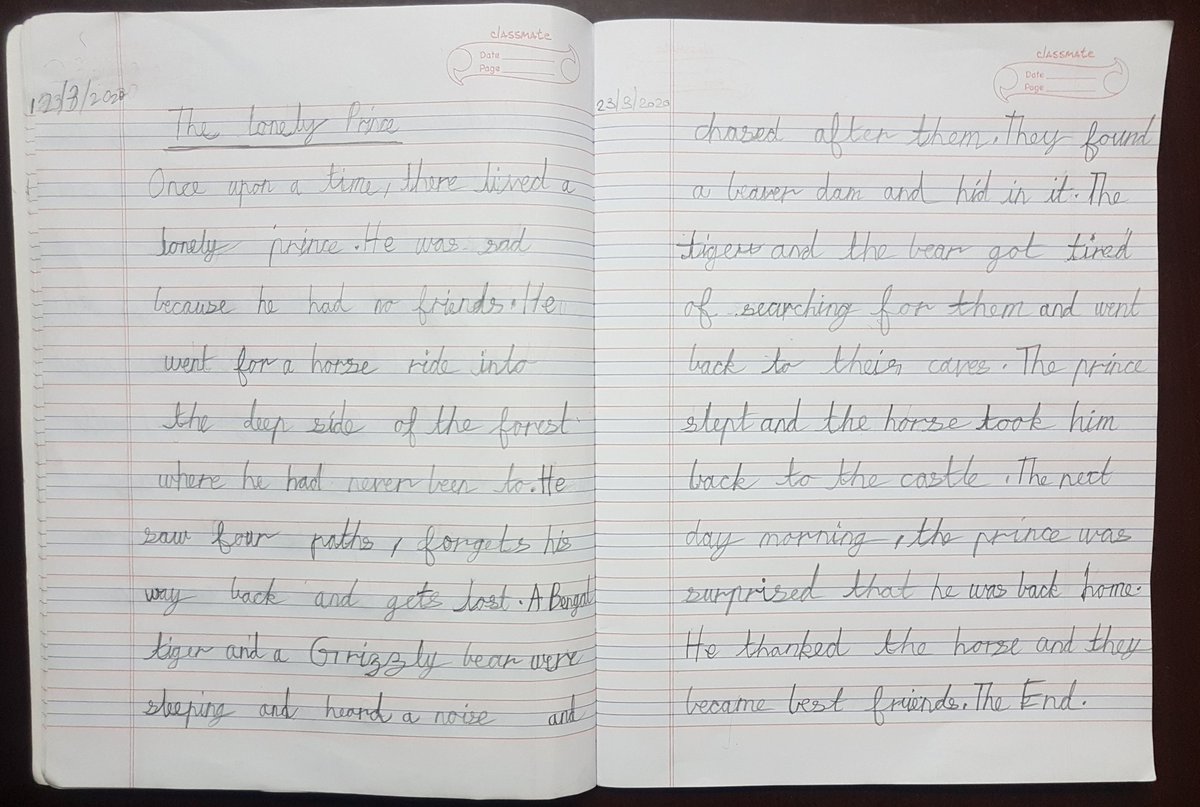 classmate
Date
Page
23/8/2020
The lonely Prince
Once upon a time, there lived a
lonely prince. He was sad
because he had no friends. He
went for a horse ride into
the deep side of the forest
where he had never been to. He
saw four paths, forgets his
way back and gets lost. A Bengal
tiger and a Grizzly bear were
sleeping and heard a noise and
classmate
Date
Page
23/8/2020
chased after them. They found
a beaver dam and hid in it. The
tiger and the bear got tired
of searching for them and went
back to their caves. The prince
slept and the horse took him
back to the castle. The next
day morning, the prince was
surprised that he was back home.
He thanked the horse and they
became best friends. The End.